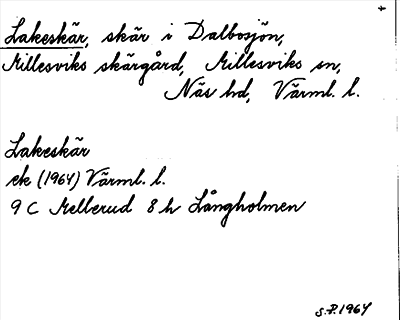 Lakeskär, skär i Dalbosjön,
Millesviks skärgård, Millesviks sn,
Näs hd, Värml. l.
Lakeskär
ek (1964) Värml. l.
9 C Mellerud 8 h Långholmen
S.P. 1964